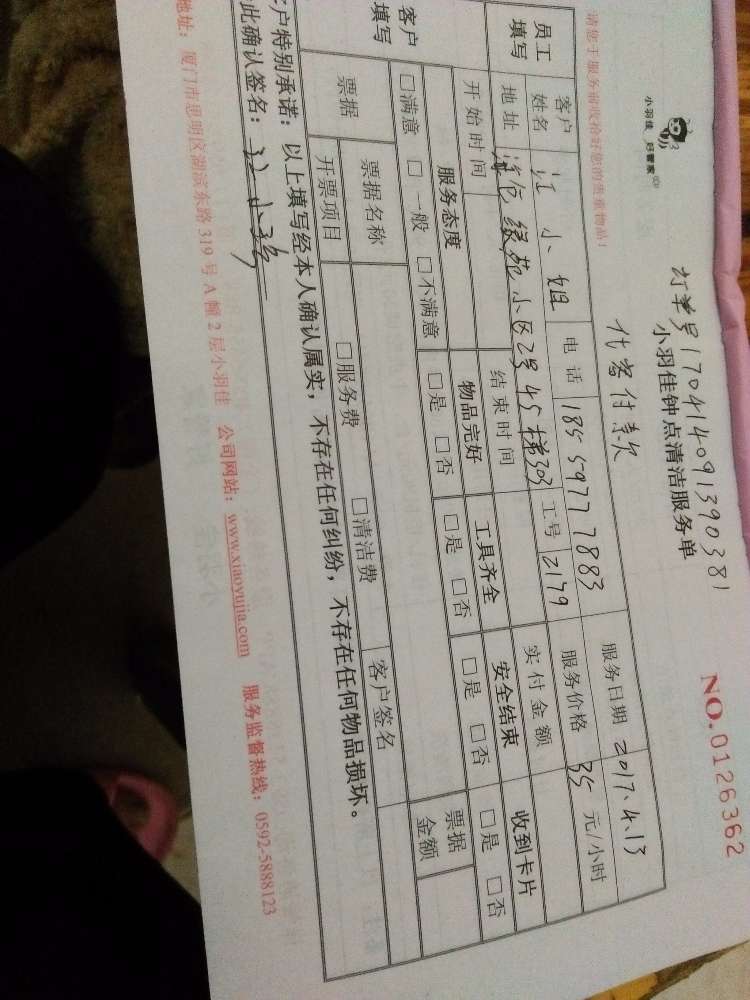 小羽佳 好管家
订单号170414091390381
小羽佳钟点清洁服务单
NO.0126362
代客付款
请您于服务前收拾好您的贵重物品!
服务日期 2017.4.13
员工填写 客户姓名 江小姐 电话 18559777883 服务价格 35 元/小时
地址 绿苑小区2号45梯303 工号 2179 实付金额
开始时间 结束时间
客户填写 服务态度 物品完好 工具齐全 安全结束 收到卡片
□满意 □一般 □不满意 □是 □否 □是 □否 □是 □否 □是 □否
票据 票据名称 □服务费 □清洁费 客户签名 票据金额
开票项目
客户特别承诺:以上填写经本人确认属实,不存在任何纠纷,不存在任何物品损坏。
此确认签名:江小姐
地址:厦门市思明区湖滨东路319号A幢2层小羽佳 公司网站:www.xiaoyujia.com 服务监督热线:0592-5888123